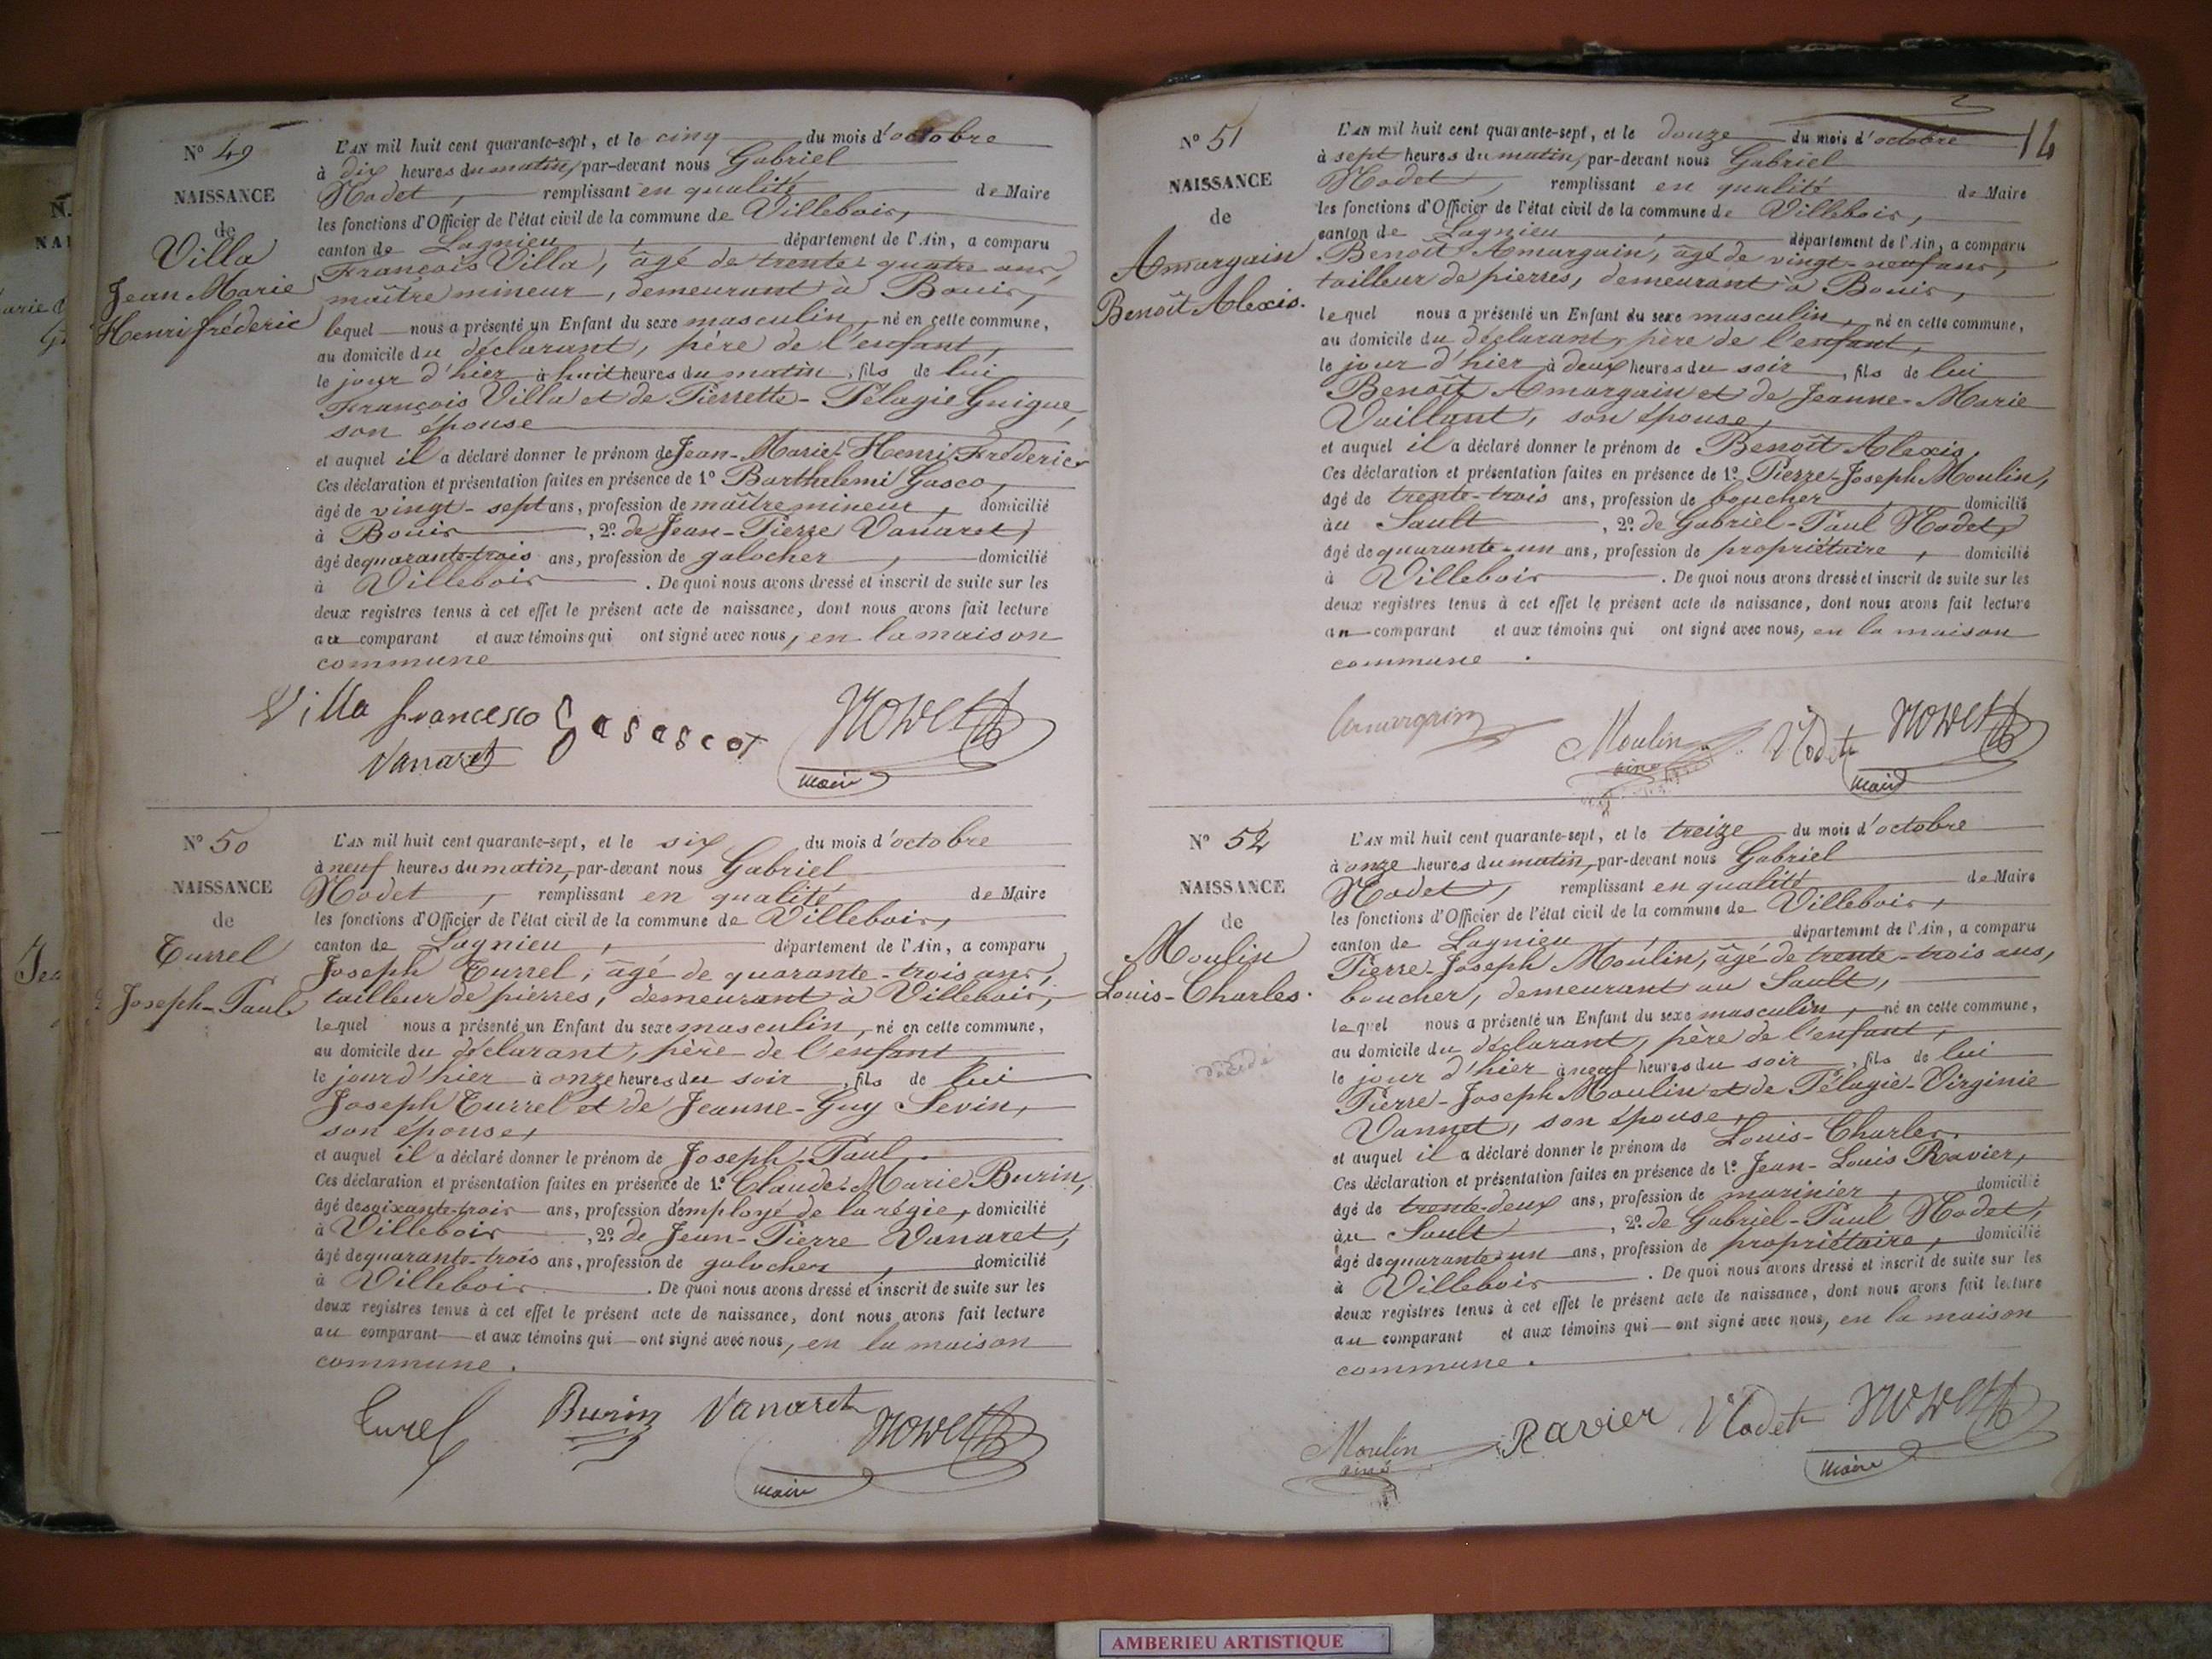 Nº 49
NAISSANCE
de
Villa
Jean Marie
Henri fréderic
L'AN mil huit cent quarante-sept, et le cinq du mois d'octobre
à dix heures du matin, par-devant nous Gabriel
Nodet, remplissant en qualité de Maire
les fonctions d'Officier de l'état civil de la commune de Villebois,
canton de Lagnieu, département de l'Ain, a comparu
François Villa, âgé de trente-quatre ans,
maître mineur, demeurant à Bouis,
lequel nous a présenté un Enfant du sexe masculin, né en cette commune,
au domicile du déclarant, père de l'enfant,
le jour d'hier à huit heures du matin, fils de lui
François Villa et de Pierrette-Pélagie Guigue,
son épouse
et auquel il a déclaré donner le prénom de Jean-Marie-Henri Fréderic
Ces déclaration et présentation faites en présence de 1º Barthelemi Gasco,
âgé de vingt-sept ans, profession de maître mineur, domicilié
à Bouis, 2º de Jean-Pierre Vanaret,
âgé de quarante-trois ans, profession de galocher, domicilié
à Villebois. De quoi nous avons dressé et inscrit de suite sur les
deux registres tenus à cet effet le présent acte de naissance, dont nous avons fait lecture
au comparant et aux témoins qui ont signé avec nous, en la maison
commune
Villa francesco Gasascot
Vanaret
maire
Nº 50
NAISSANCE
de
Turrel
Joseph-Paul
L'AN mil huit cent quarante-sept, et le six du mois d'octobre
à neuf heures du matin, par-devant nous Gabriel
Nodet, remplissant en qualité de Maire
les fonctions d'Officier de l'état civil de la commune de Villebois,
canton de Lagnieu, département de l'Ain, a comparu
Joseph Turrel, âgé de quarante-trois ans,
tailleur de pierres, demeurant à Villebois,
lequel nous a présenté un Enfant du sexe masculin, né en cette commune,
au domicile du déclarant, père de l'enfant
le jour d'hier à onze heures du soir, fils de lui
Joseph Turrel et de Jeanne-Guy Sevin,
son épouse,
et auquel il a déclaré donner le prénom de Joseph-Paul,
Ces déclaration et présentation faites en présence de 1º Claude-Marie Burin,
âgé de soixante-trois ans, profession d'employé de la régie, domicilié
à Villebois, 2º de Jean-Pierre Vanaret,
âgé de quarante-trois ans, profession de galocher, domicilié
à Villebois. De quoi nous avons dressé et inscrit de suite sur les
deux registres tenus à cet effet le présent acte de naissance, dont nous avons fait lecture
au comparant et aux témoins qui ont signé avec nous, en la maison
commune.
Turel Burin Vanaret
maire
14
Nº 51
NAISSANCE
de
Amargain
Benoît Alexis.
L'AN mil huit cent quarante-sept, et le douze du mois d'octobre
à sept heures du matin, par-devant nous Gabriel
Nodet, remplissant en qualité de Maire
les fonctions d'Officier de l'état civil de la commune de Villebois,
canton de Lagnieu, département de l'Ain, a comparu
Benoît Amargain, âgé de vingt-neuf ans,
tailleur de pierres, demeurant à Bouis,
lequel nous a présenté un Enfant du sexe masculin, né en cette commune,
au domicile du déclarant, père de l'enfant,
le jour d'hier à deux heures du soir, fils de lui
Benoît Amargain et de Jeanne-Marie
Vaillant, son épouse,
et auquel il a déclaré donner le prénom de Benoît Alexis,
Ces déclaration et présentation faites en présence de 1º Pierre-Joseph Moulin,
âgé de trente-trois ans, profession de boucher, domicilié
au Sault, 2º de Gabriel-Paul Nodet,
âgé de quarante-un ans, profession de propriétaire, domicilié
à Villebois. De quoi nous avons dressé et inscrit de suite sur les
deux registres tenus à cet effet le présent acte de naissance, dont nous avons fait lecture
au comparant et aux témoins qui ont signé avec nous, en la maison
commune.
Amargain Moulin Nodet
ainé
maire
Nº 52
NAISSANCE
de
Moulin
Louis-Charles.
décédé
L'AN mil huit cent quarante-sept, et le treize du mois d'octobre
à onze heures du matin, par-devant nous Gabriel
Nodet, remplissant en qualité de Maire
les fonctions d'Officier de l'état civil de la commune de Villebois,
canton de Lagnieu, département de l'Ain, a comparu
Pierre-Joseph Moulin, âgé de trente-trois ans,
boucher, demeurant au Sault,
lequel nous a présenté un Enfant du sexe masculin, né en cette commune,
au domicile du déclarant, père de l'enfant,
le jour d'hier à neuf heures du soir, fils de lui
Pierre-Joseph Moulin et de Pélagie-Virginie
Vannet, son épouse,
et auquel il a déclaré donner le prénom de Louis-Charles.
Ces déclaration et présentation faites en présence de 1º Jean-Louis Ravier,
âgé de trente-deux ans, profession de marinier, domicilié
au Sault, 2º de Gabriel-Paul Nodet,
âgé de quarante-un ans, profession de propriétaire, domicilié
à Villebois. De quoi nous avons dressé et inscrit de suite sur les
deux registres tenus à cet effet le présent acte de naissance, dont nous avons fait lecture
au comparant et aux témoins qui ont signé avec nous, en la maison
commune.
Moulin Ravier Nodet
ainé
maire
AMBERIEU ARTISTIQUE